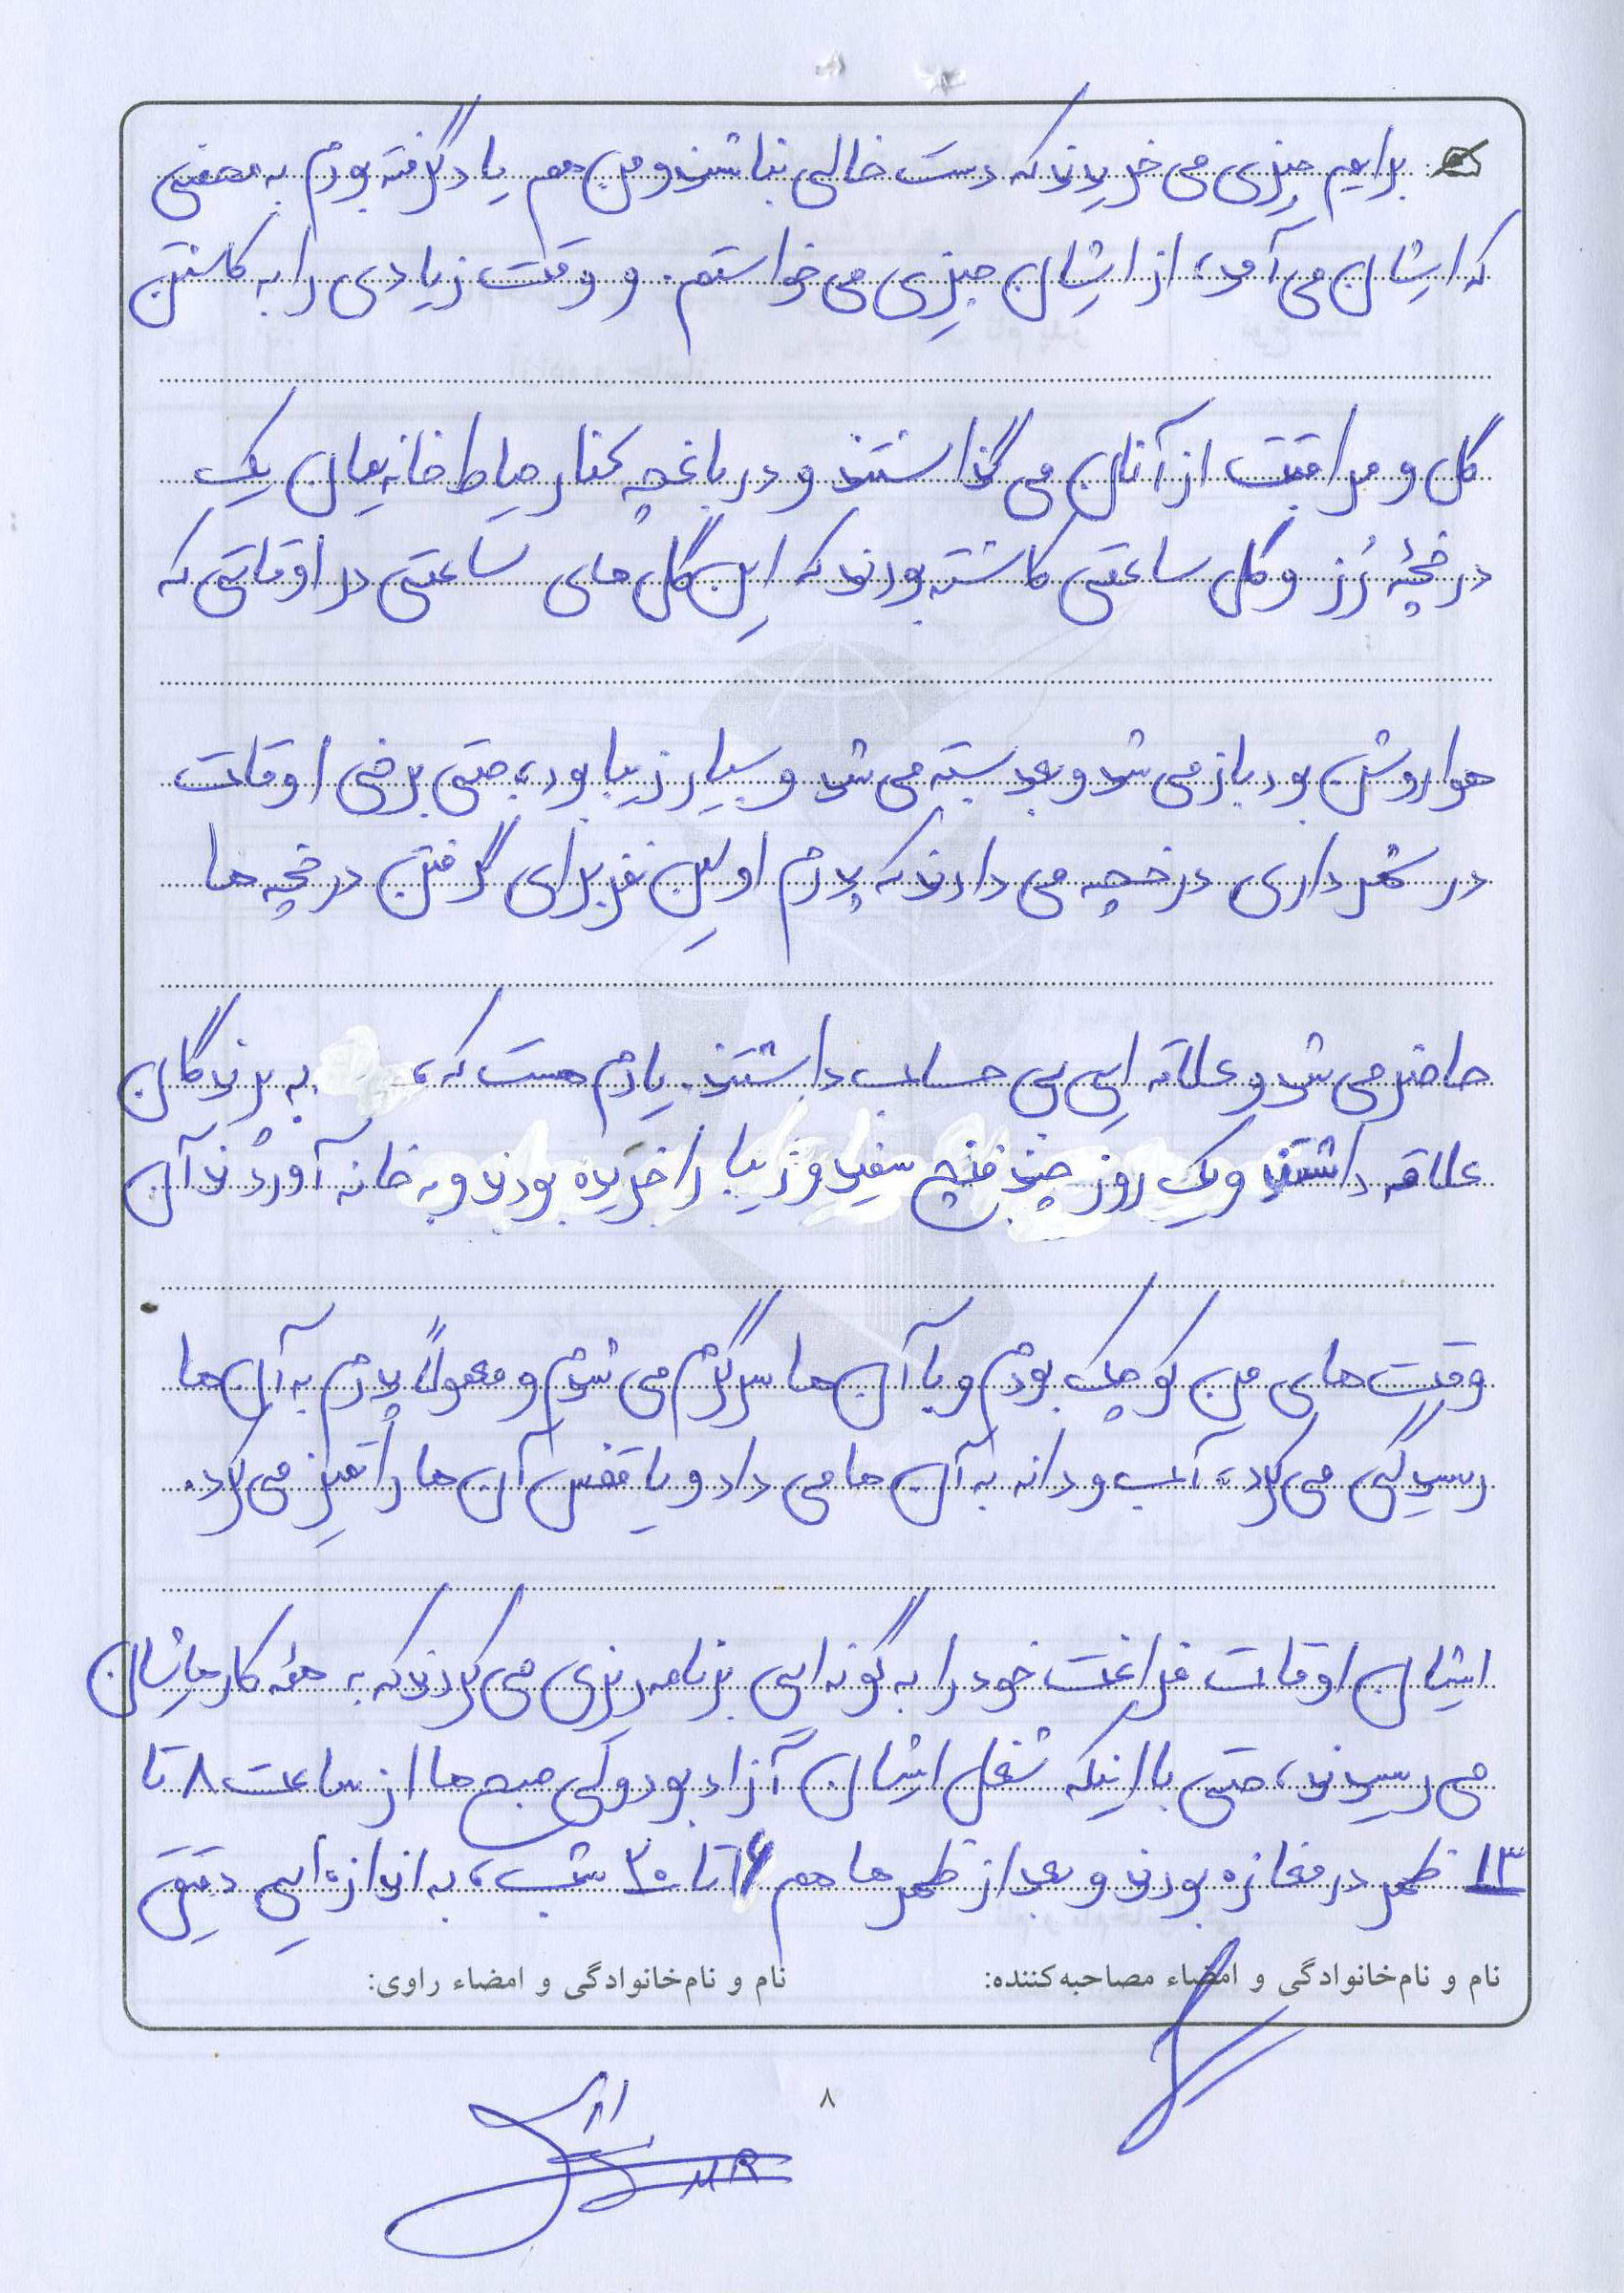 برایم چیزی می خریدند که دست خالی نباشند و من هم یاد گرفته بودم به محضی
که ایشان می آمد، از ایشان چیزی می خواستم. و وقت زیادی را به کاشتن
گل و مراقبت از آنان می گذاشتند و در باغچه کنار حیاط خانه یمان یک
درخچۀ رُز و گل ساعتی کاشته بودند که این گل های ساعتی در اوقاتی که
هوا روشن بود باز می شد و بعد بسته می شد و بسیار زیبا بود، حتی برخی اوقات
در شهرداری درخچه می دادند که پدرم اولین نفر برای گرفتن درخچه ها
حاضر می شد و علاقه ایی بی حساب داشتند. یادم هست که، به پرندگان
علاقه داشتند و یک روز چند فنچ سفید و زیبا را خریده بودند و به خانه آوردند آن
وقت های من کوچک بودم و با آن ها سرگرم می شدم و معمولاً پدرم به آن ها
رسیدگی می کرد، آب و دانه به آن ها می داد و یا قفس آن ها را تمیز می کرد.
ایشان اوقات فراغت خود را به گونه ایی برنامه ریزی می کردند که به همه کارهایشان
می رسیدند، حتی با اینکه شغل ایشان آزاد بود ولی صبح ها از ساعت ۸ تا
۱۳ ظهر در مغازه بودند و بعد از ظهر ها هم ۱۶ تا ۲۰ شب، به اندازه ایی دقیق
نام و نام‌خانوادگی و امضاء مصاحبه‌کننده: نام و نام‌خانوادگی و امضاء راوی:
۸